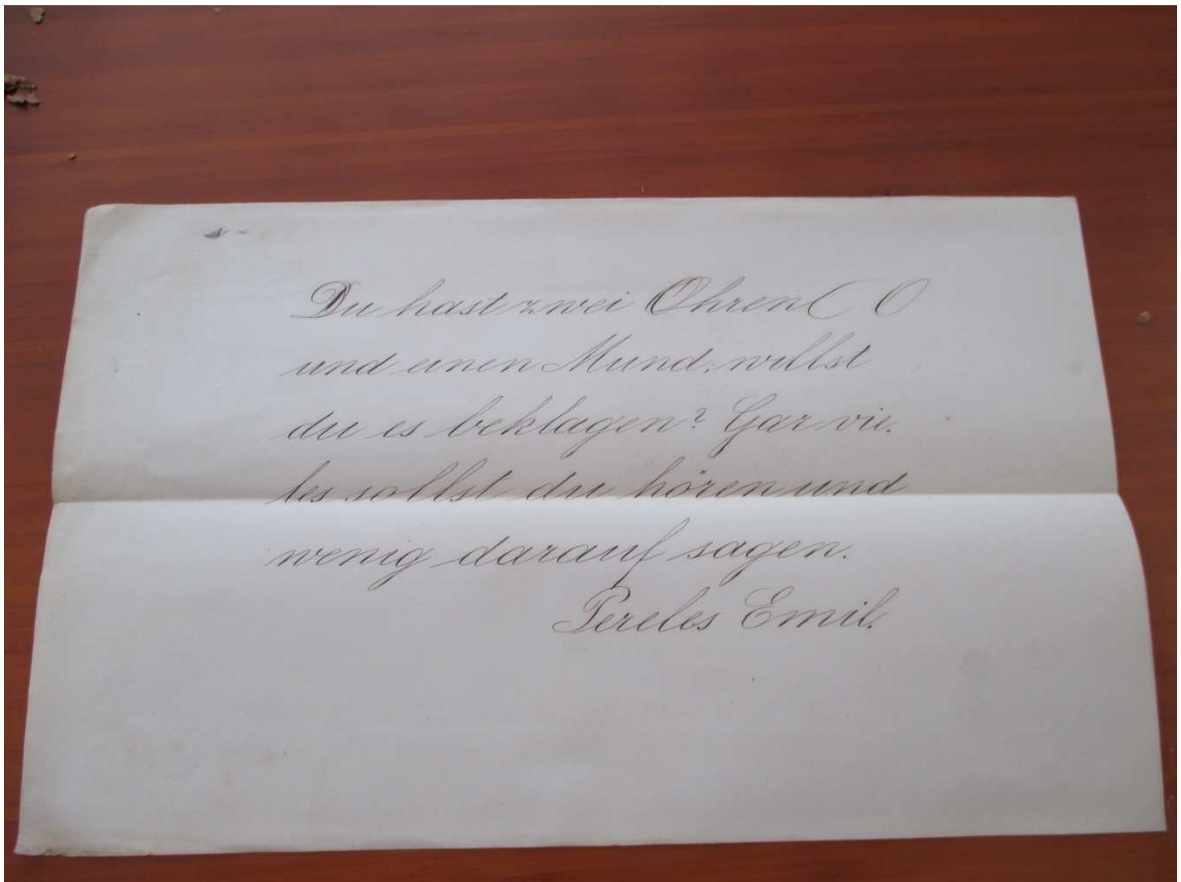 Du hast zwei Ohren ( 0
und einen Mund; willst
du es beklagen? Gar vie-
les sollst du hören und
wenig darauf sagen.
Pereles Emil.